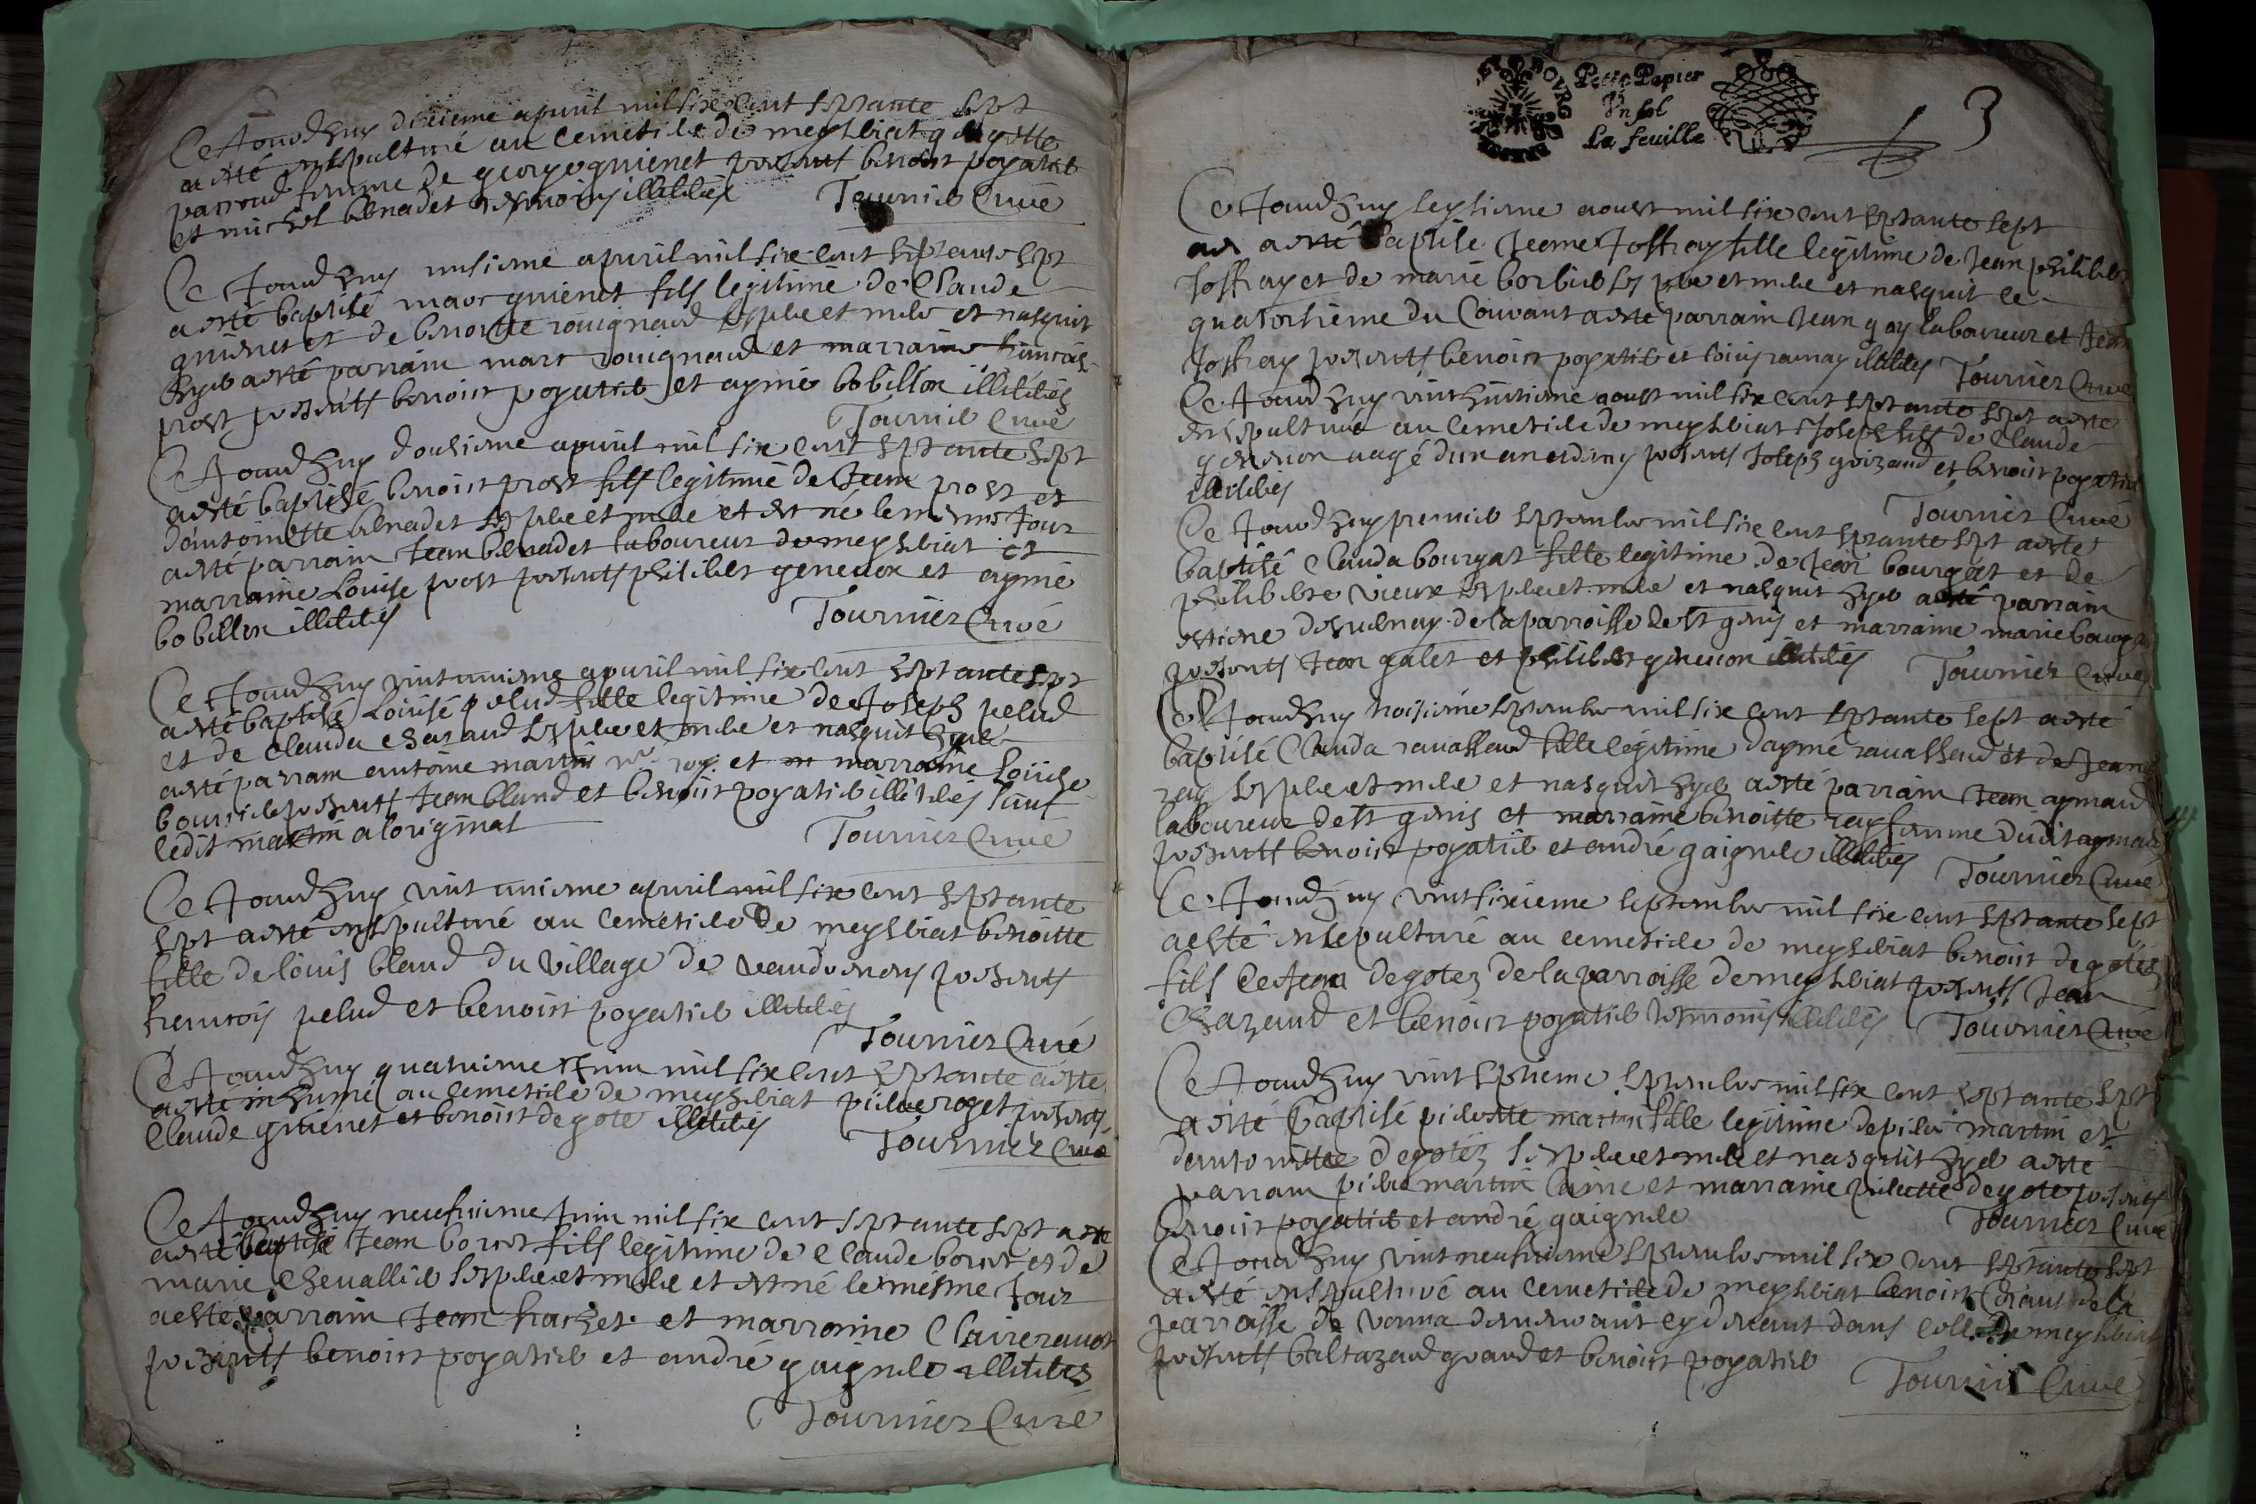 Ce Jourdhuy dixieme apvril mil six cent septante sept
a esté ensepulturé au cemetiere de meysieriat
femme de george guienet presents benoist poyatier
et michel benadet tesmoins illiterés Tournier Curé
Ce Jourdhuy unsieme apvril mil six cent septante sept
a esté baptisé marc guienet fils legitime de Claude
guienet et de benoitte rouignaud ses pere et mere et nasquit
hyer a esté parrain marc rouignaud et marraine francoise
prost presents benoist poyatier et aymé bobillon illiterés
Tournier Curé
Ce Jourdhuy dousieme apvril mil six cent septante sept
a esté baptisé benoist prost fils legitime de Jean prost et
dantoinette benadet ses pere et mere et est né le mesme Jour
a esté parrain Jean benadet laboureur de meysieriat et
marraine Louise prost presents philibert geneuon et aymé
bobillon illiterés Tournier Curé
Ce Jourdhuy vint unieme apvril mil six cent septante sept
a esté baptisé Louise pelud fille legitime de Joseph pelud
et de Clauda chasaud ses pere et mere et nasquit hyer
a esté parrain antoine martin et marraine Louise
bourrier presents Jean bland et benoist poyatier illiterés sauf
ledit martin a loriginal Tournier Curé
Ce Jourdhuy vint unieme apvril mil six cent septante
sept a esté ensepulturé au cemetiere de meysieriat benoitte
fille de louis bland du village de presents
francois pelud et benoist poyatier illiterés
Tournier Curé
Ce Jourdhuy quatrieme Juin mil six cent septante a este
a esté inhumé au cemetiere de meysieriat pierre roget presents
Claude guienet et benoist degote illiterés Tournier Curé
Ce Jourdhuy neufuieme Juin mil six cent septante sept a este
a esté baptisé Jean boret fils legitime de Claude boret et de
marie Chevallier ses pere et mere et est né le mesme Jour
a esté parrain Jean et marraine Claire
presents benoist poyatier et andré gaignere illiterés
Tournier Curé
Petit Papier
Un sol
La feuille
3
Ce Jourdhuy seysieme aoust mil six cent septante sept
a esté baptisé Jeanne Joffray fille legitime de Jean philibert
Joffray et de marie borbier ses pere et mere et nasquit le
quatorsieme du Courant a esté parrain Jean gay laboureur et
Joffray presents benoist poyatier et louis ramay illiterés Tournier Curé
Ce Jourdhuy vint huitieme aoust mil six cent septante sept a esté
ensepulturé au cemetiere de meysieriat Joseph fils de Claude
geneuon aagé dun an et demy presents Joseph goizaud et benoist poyatier
illiterés Tournier Curé
Ce Jourdhuy premier septembre mil six cent septante sept a esté
baptisé Clauda bourgat fille legitime de Jean bourgat et de
philiberte vieux ses pere et mere et nasquit hyer a esté parrain
estiene de la parroisse de st genis et marraine marie
presents Jean galet et philibert geneuon illiterés Tournier Curé
Ce Jourdhuy troisieme septembre mil six cent septante sept a esté
baptisé Clauda ravassaud fille legitime daymé ravassaud et de Jeanne
rey ses pere et mere et nasquit hyer a esté parrain Jean aymaud
laboureur de st genis et marraine benoitte rey femme dudit aymaud
presents benoist poyatier et andré gaignere illiterés Tournier Curé
Ce Jourdhuy vint sixieme septembre mil six cent septante sept
a esté ensepulturé au cemetiere de meysieriat benoist degotez
fils de Jean degotez de la parroisse de meysieriat presents Jean
Chazaud et benoist poyatier tesmoins illiterés Tournier Curé
Ce Jourdhuy vint septieme septembre mil six cent septante sept
a esté baptisé pierrette martin fille legitime de pierre martin et
dantoinette degotez ses pere et mere et nasquit hyer a esté
parrain pierre martin laine et marraine pierrette degote presents
benoist poyatier et andré gaignere Tournier Curé
Ce Jourdhuy vint neufuieme septembre mil six cent septante sept
a esté ensepulturé au cemetiere de meysieriat benoist de la
parroisse de demeurant cy devant dans celle de meysieriat
presents baltazard goaud et benoist poyatier
Tournier Curé